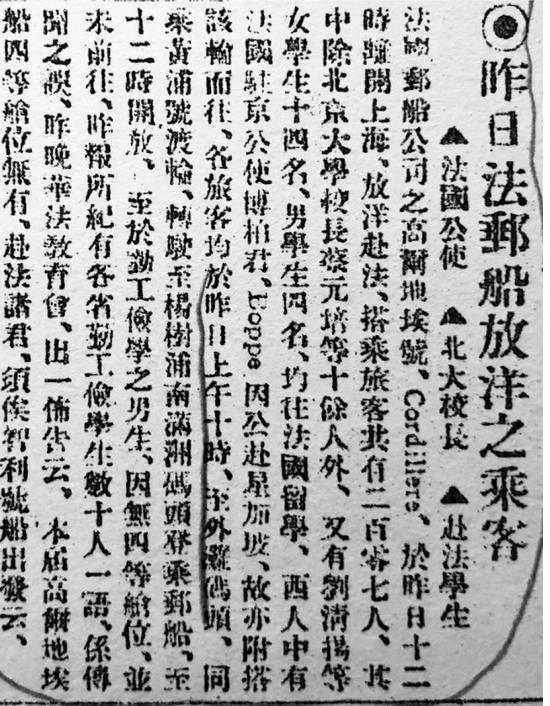 ◉昨日法郵船放洋之乘客
▲法國公使 ▲北大校長 ▲赴法學生
法國郵船公司之高爾地埃號、Cordillere、於昨日十二
時離開上海、放洋赴法、搭乘旅客共有二百零七人、其
中除北京大學校長蔡元培等十餘人外、又有劉清揚等
女學生十四名、男學生四名、均往法國留學、西人中有
法國駐京公使博柏君、Boppe 因公赴星加坡、故亦附搭
該輪而往、各旅客均於昨日上午十時、至外灘碼頭、同
乘黃浦號渡輪、轉駛至楊樹浦南滿洲碼頭登乘郵船、至
十二時開放、至於勤工儉學之男生、因無四等艙位、並
未前往、昨報所紀有各省勤工儉學生數十人一語、係傳
聞之誤、昨晚華法教育會、出一佈告云、本屆高爾地埃
船四等艙位無有、赴法諸君、須俟智利號船出發云、